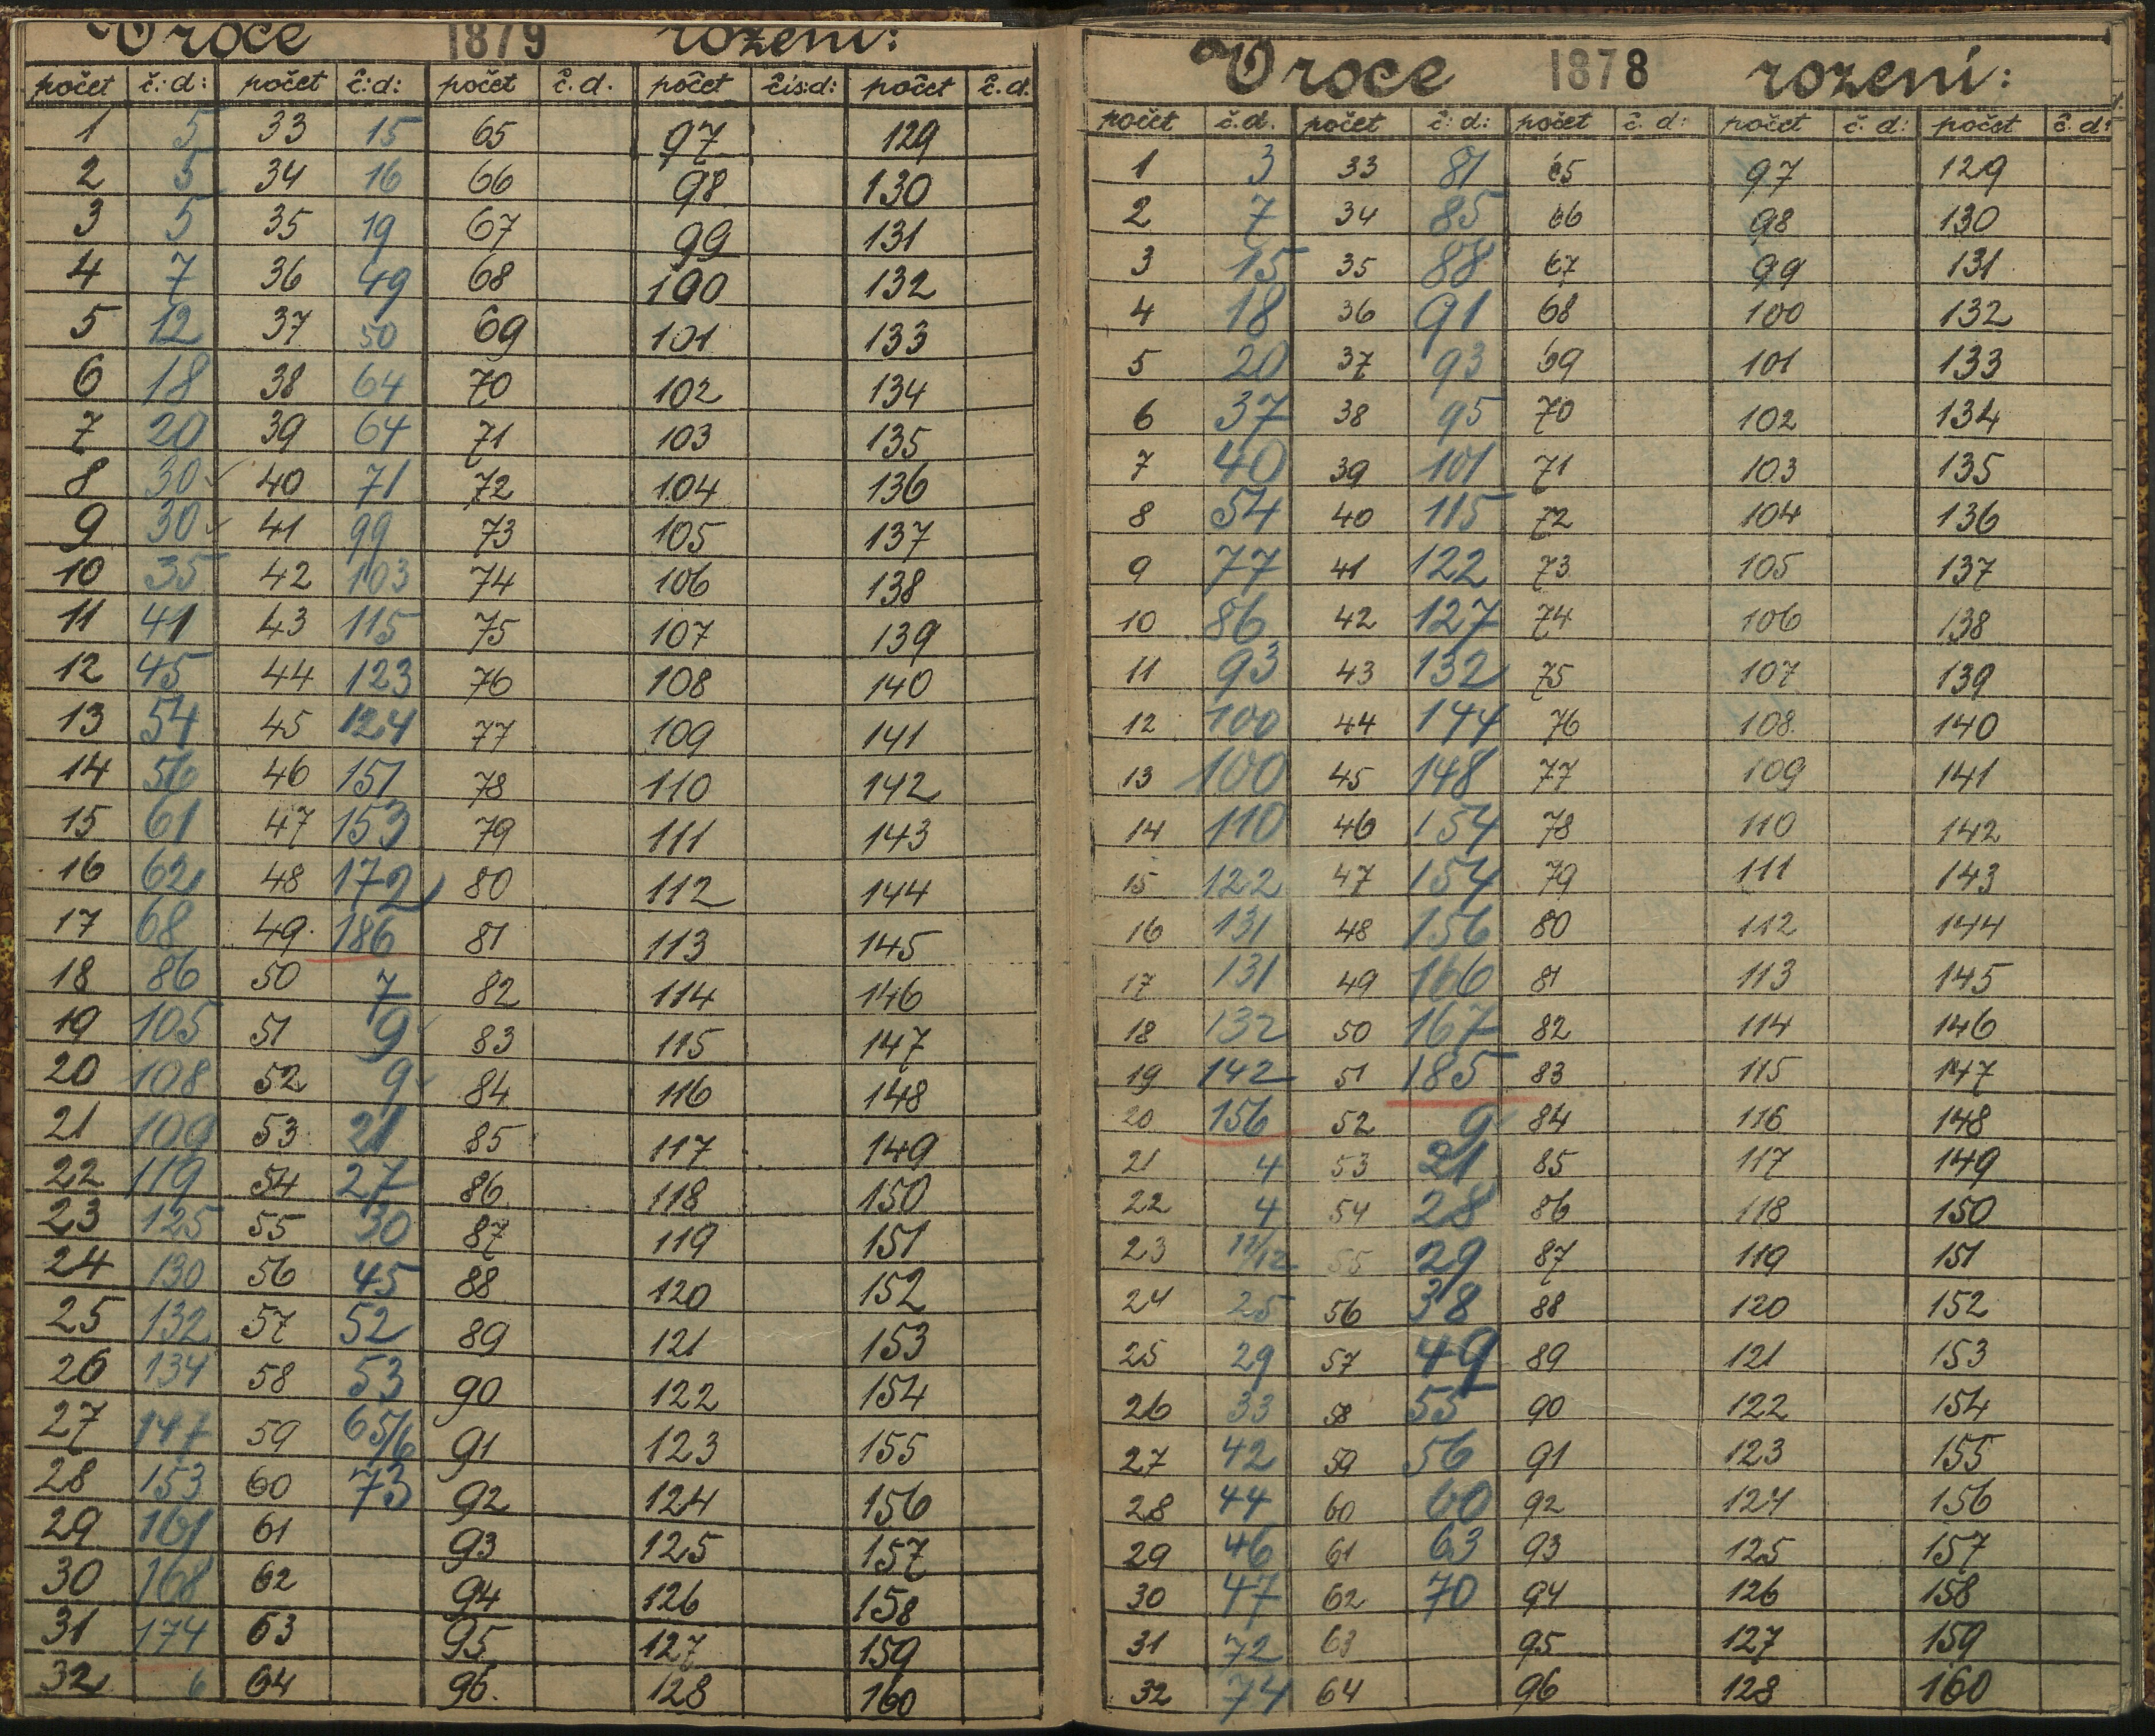 V roce 1879 rození:
počet č: d: počet č: d: počet č. d. počet čís: d: počet č. d.
1 5 33 15 65 97 129
2 5 34 16 66 98 130
3 5 35 19 67 99 131
4 7 36 49 68 100 132
5 12 37 50 69 101 133
6 18 38 64 70 102 134
7 20 39 64 71 103 135
8 30 40 71 72 104 136
9 30 41 99 73 105 137
10 35 42 103 74 106 138
11 41 43 115 75 107 139
12 45 44 123 76 108 140
13 54 45 124 77 109 141
14 56 46 151 78 110 142
15 61 47 153 79 111 143
16 62 48 172 80 112 144
17 68 49 186 81 113 145
18 86 50 7 82 114 146
19 105 51 9 83 115 147
20 108 52 9 84 116 148
21 109 53 21 85 117 149
22 119 54 27 86 118 150
23 125 55 30 87 119 151
24 130 56 45 88 120 152
25 132 57 52 89 121 153
26 134 58 53 90 122 154
27 147 59 65/6 91 123 155
28 153 60 73 92 124 156
29 161 61 93 125 157
30 168 62 94 126 158
31 174 63 95 127 159
32 6 64 96 128 160
V roce 1878 rození:
počet č. d. počet č: d: počet č. d: počet č. d: počet č. d:
1 3 33 81 65 97 129
2 7 34 85 66 98 130
3 15 35 88 67 99 131
4 18 36 91 68 100 132
5 20 37 93 69 101 133
6 37 38 95 70 102 134
7 40 39 101 71 103 135
8 54 40 115 72 104 136
9 77 41 122 73 105 137
10 86 42 127 74 106 138
11 93 43 132 75 107 139
12 100 44 144 76 108 140
13 100 45 148 77 109 141
14 110 46 154 78 110 142
15 122 47 154 79 111 143
16 131 48 156 80 112 144
17 131 49 166 81 113 145
18 132 50 167 82 114 146
19 142 51 185 83 115 147
20 156 52 9 84 116 148
21 4 53 21 85 117 149
22 4 54 28 86 118 150
23 11/12 55 29 87 119 151
24 25 56 38 88 120 152
25 29 57 49 89 121 153
26 33 58 55 90 122 154
27 42 59 56 91 123 155
28 44 60 60 92 124 156
29 46 61 63 93 125 157
30 47 62 70 94 126 158
31 72 63 95 127 159
32 74 64 96 128 160